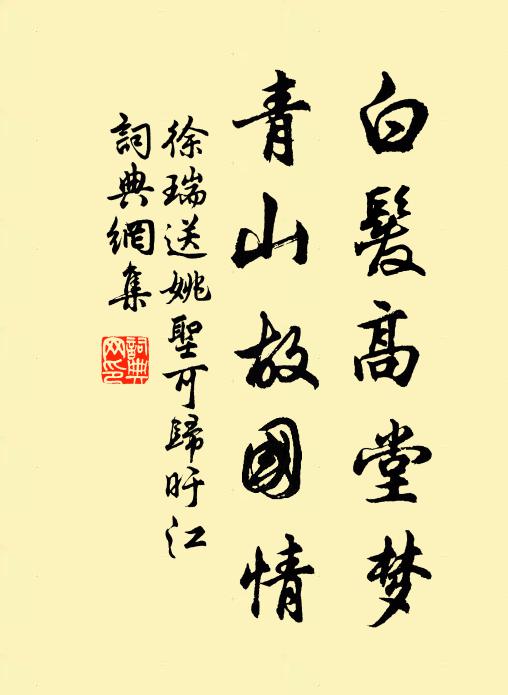 白髮高堂梦
青山故國情
徐瑞送姚聖可歸盱江
詞典網集
詞典網印